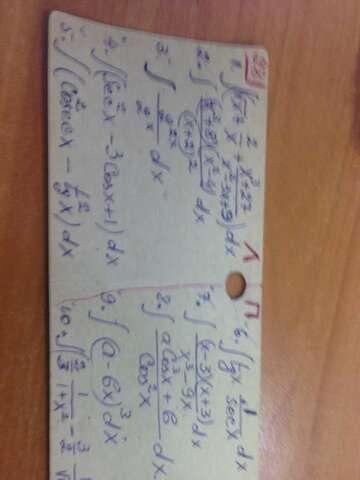 Л
1. ∫(√x + 2/x + (x³+27)/(x²-3x+9))dx
2. ∫ (x³+8)(x²-4)/(x+2)² dx
3. ∫ e^{2x}/2^x dx
4. ∫(Sec²x - 3Cosx + 1)dx
5. ∫(Cosec²x - tg²x)dx
П
6. ∫ tgx 1/secx dx
7. ∫ (x-3)(x+3)/(x³-9x) dx
8. ∫ (aCos²x + b)/Cos²x dx
9. ∫(a-bx)³dx
10. ∫(2/3 1/(1+x²) - 3/2 1/√